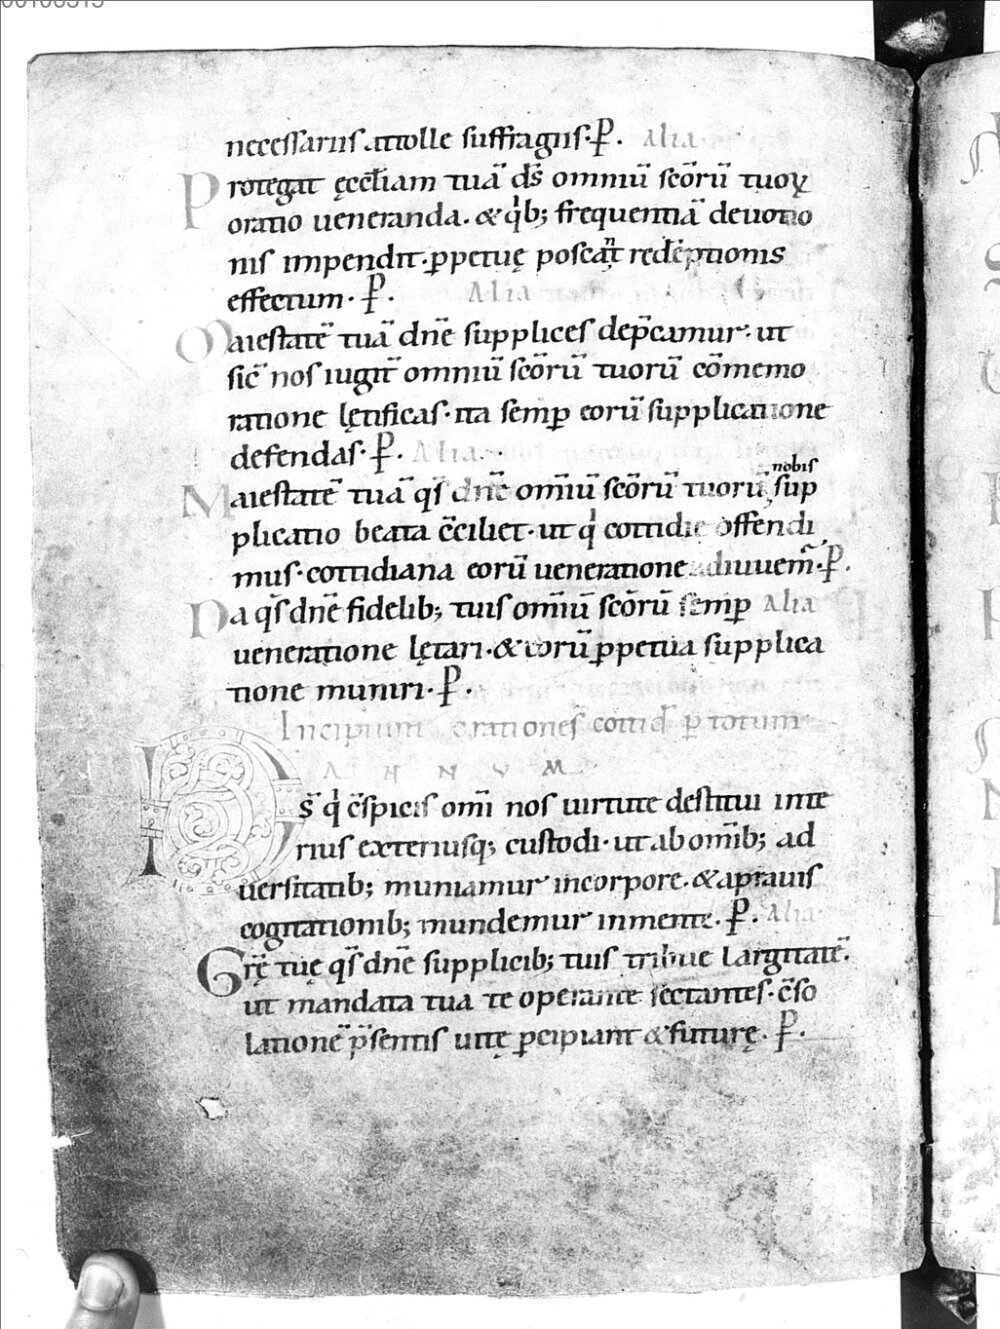 necessariis attolle suffragiis· P̲. Alia·
Protegat ęccl̄iam tuā ds̄ omniū scōrū tuoꝝ
oratio ueneranda. & qⁱb; frequentiā deuotio
nis impendit· ꝑpetuę poscat redēptionis
effectum· P̲. Alia
Maiestatē tuā dn̄e supplices dep̄camur· ut
sic̄ nos iugit̄ omniū scōrū tuorū cōmemo
ratione lętificas· ita semꝑ eorū supplicatione
defendas· P̲. Alia·
nobis
Maiestatē tuā qs̄ dn̄e om̄iū scōrū tuorū, sup
plicatio beata c̄ciliet· ut qⁱ cottidie offendi
mus· cottidiana eorū ueneratione adiuuem̄· P̲.
Da qs̄ dn̄e fidelib; tuis om̄iū scōrū semꝑ Alia
ueneratione lętari· & eorū ꝑpetua supplica
tione muniri· P̲.
Incipiunt orationes cottid̄ ꝑ totum
ANNVM·
Ds̄ qⁱ c̄spicis om̄i nos uirtute destitui inte
rius exteriusq; custodi· ut ab om̄ib; ad
uersitatib; muniamur in corpore· & a prauis
cogitationib; mundemur in mente· P̲. Alia
Gr̄ę tuę qs̄ dn̄e supplicib; tuis tribue largitatē.
ut mandata tua te operante sectantes· c̄so
lationē p̄sentis uitę ꝑcipiant & futurę· P̲.